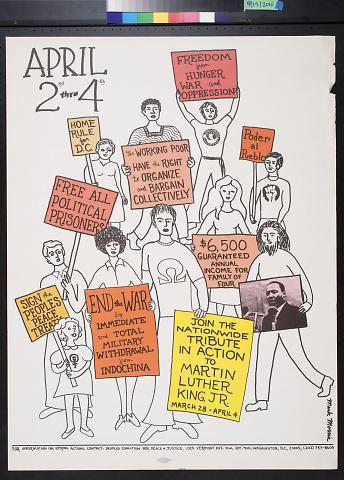 9/15/2010
APRIL
2nd thru 4th
FREEDOM
from
HUNGER,
WAR and
OPPRESSION!
HOME
RULE
for
D.C.
The WORKING POOR
HAVE the RIGHT
to ORGANIZE
and BARGAIN
COLLECTIVELY
Poder
al
Pueblo
FREE ALL
POLITICAL
PRISONERS
$6,500
GUARANTEED
ANNUAL
INCOME FOR
FAMILY OF
FOUR
SIGN the
PEOPLES
PEACE
TREATY
END the WAR
by
IMMEDIATE
and TOTAL
MILITARY
WITHDRAWAL
from
INDOCHINA
JOIN THE
NATIONWIDE
TRIBUTE
IN ACTION
to
MARTIN
LUTHER
KING JR.
MARCH 28 - APRIL 4
Mark Morris
FOR INFORMATION ON SPRING ACTIONS CONTACT: PEOPLES COALITION FOR PEACE & JUSTICE, 1029 VERMONT AVE. NW, WASHINGTON, D.C., 20005, (202) 737-8600